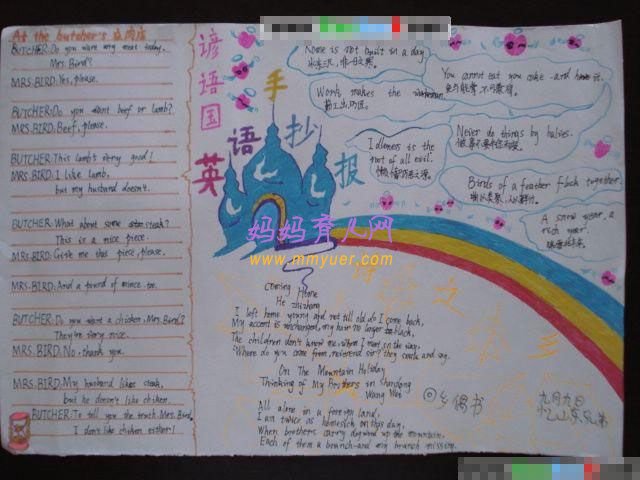 At the butcher's 在肉店
BUTCHER: Do you want any meat today,
Mrs. Bird?
MRS. BIRD: Yes, please.
BUTCHER: Do you want beef or lamb?
MRS. BIRD: Beef, please.
BUTCHER: This lamb's very good!
MRS. BIRD: I like lamb,
but my husband doesn't.
BUTCHER: What about some steak?
This is a nice piece.
MRS. BIRD: Give me this piece, please.
MRS. BIRD: And a pound of mince, too.
BUTCHER: Do you want a chicken, Mrs. Bird?
They're very nice.
MRS. BIRD: No, thank you.
MRS. BIRD: My husband likes steak,
but he doesn't like chicken.
BUTCHER: To tell you the truth, Mrs. Bird,
I don't like chicken either!
谚语国
英语手抄报
Rome is not built in a day
Work makes the
You cannot eat you cake and have it.
Idleness is the
root of all evil.
Never do things by halves.
Birds of a feather flock together.
A snow year, a
rich year.
妈妈育人网
www.mmyuer.com
诗
之
Coming Home
He zhizhang
I left home young and not till old do I come back,
My accent is unchanged, my hair no longer black,
The children don't know me, whom I meet on the way,
"Where do you come from, reverend sir? they smile and say.
On The Mountain Holiday
Thinking of My Brothers in Shandong
Wang Wei
All alone in a foreign land,
I am twice as homesick on this day,
When brothers carry dogwood up the mountain,
Each of them a branch—and my branch missing.
回乡偶书
九月九日
忆山东兄弟